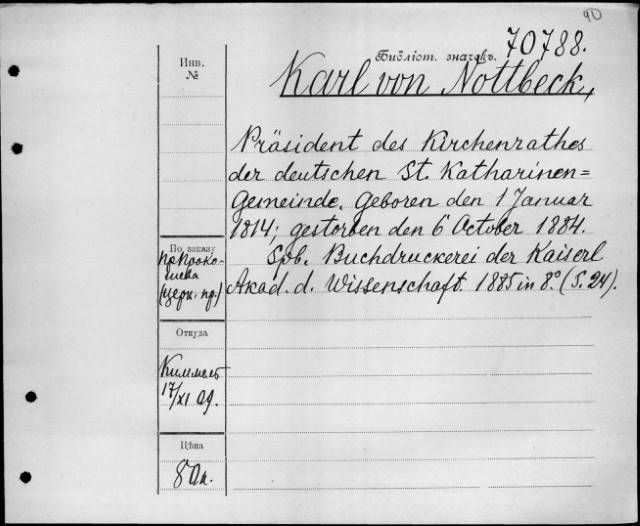 90
Инв.
№
Библіот. значекъ. 70788.
Karl von Nottbeck,
Präsident des Kirchenrathes
der deutschen St. Katharinen=
gemeinde. Geboren den 1 Januar
1814; gestorben den 6 October 1884.
Spb. Buchdruckerei der Kaiserl
Akad. d. Wissenschaft. 1885 in 8º (S. 24).
По заказу
пр. Проко-
шева
(церк. пр.)
Откуда
Киммель
17/XI 09.
Цѣна
80 к.